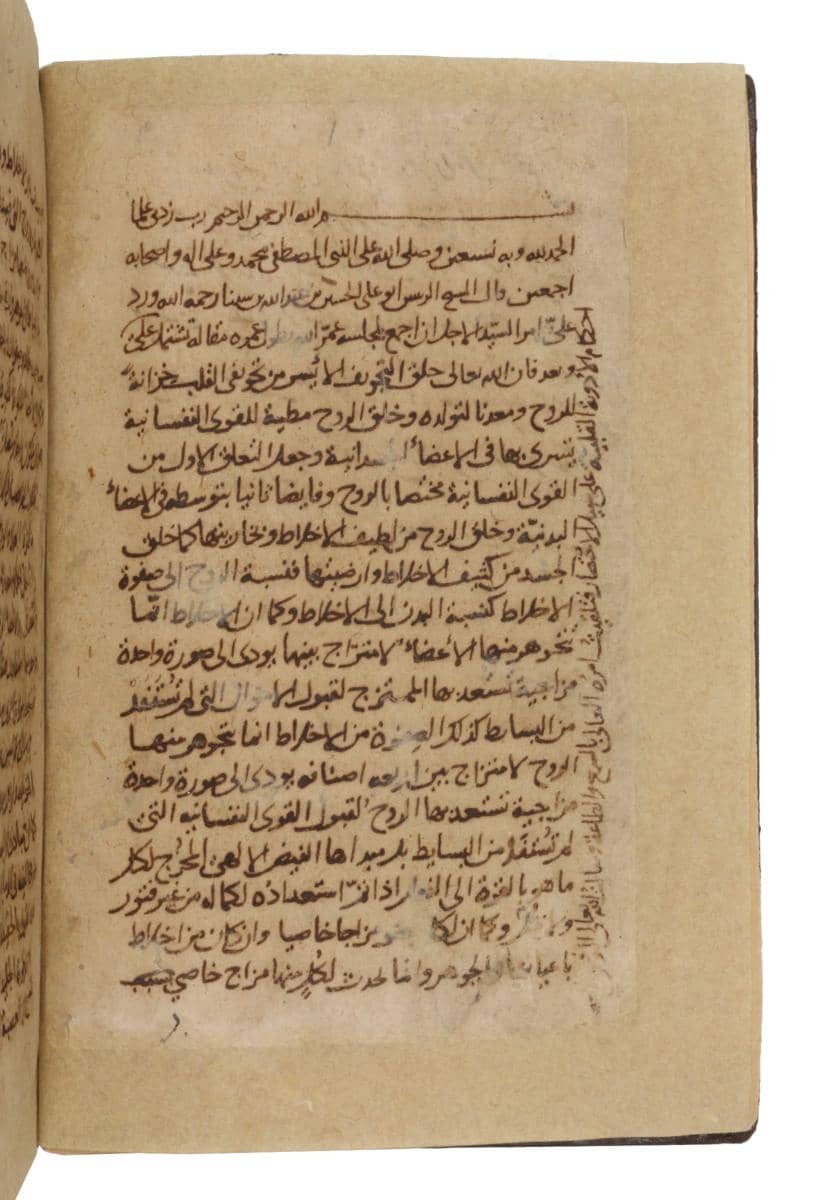 بسم الله الرحمن الرحيم رب زدنى علما
الحمد لله وبه نستعين وصلى الله على النبى المصطفى محمد وعلى اله واصحابه
اجمعين قال الشيخ الرئيس ابو على الحسين بن عبد الله بن سينا رحمه الله ورد
علىّ امر السيّد الاجل ان اجمع لمجلسه عمّر الله بطول عمره مقالة تشتمل على
احكام الادوية القلبية على سبيل الاختصار فتلقيت امره العالى بالسمع والطاعة
وبعد فان الله تعالى خلق التجويف الايسر من تجويفى القلب خزانة
للروح ومعدنا لتولده وخلق الروح مطية للقوى النفسانية
يسرى بها فى الاعضاء الجسدانية وجعل التعلق الاول من
القوى النفسانية مختصا بالروح وفايضا ثانيا بتوسطه فى الاعضاء
البدنيّة وخلق الروح من لطيف الاخلاط وبخاريتها كما خلق
الجسد من كثيف الاخلاط وارضيتها فنسبة الروح الى صفوة
الاخلاط كنسبة البدن الى الاخلاط وكما ان الاخلاط انّما
تتجوهر منها الأعضاء لامتزاج بينها يودى الى صورة واحدة
مزاجية تستعد بها الممتزج لقبول الاحوال التى لم تُستَفَد
من البسايط كذلك الصفوة من الاخلاط انما يتجوهر منها
الروح لامتزاج بين اربعه اصنافه يودى الى صورة واحدة
مزاجية تستعد بها الروح لقبول القوى النفسانيه التى
لم تُستَفَد من البسايط بل مبداها الفيض الالهى المخرج لكل
ما هو بالقوة الى الفعل اذا تمّ استعداده لكماله من غير فتور
ولا بخل وكما ان لكل عضو مزاجا خاصيا وان كان من اخلاط
باعيانها الجوهر وانما يحدث لكلٍ منها مزاج خاصي بسبب